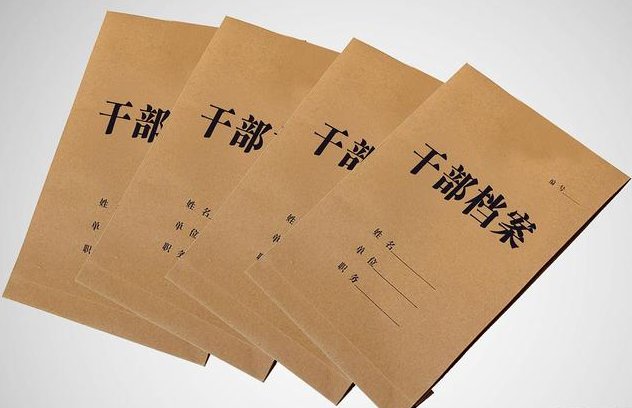 干部
姓
单
职
干部
姓名
单位
职务
干部
姓
单
编号
干部档案
姓名
单位
职务